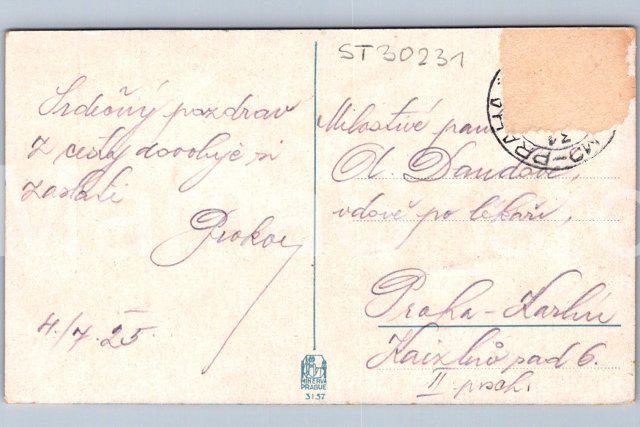 ST30231
Srdečný pozdrav
z cesty dovoluje si
zaslati
Prokop
4./7.25.
Milostivé paní
A. Dandové,
vdově po lékaři,
Praha-Karlín
řad 6.
II posch.
MINERVA
PRAGUE
3157